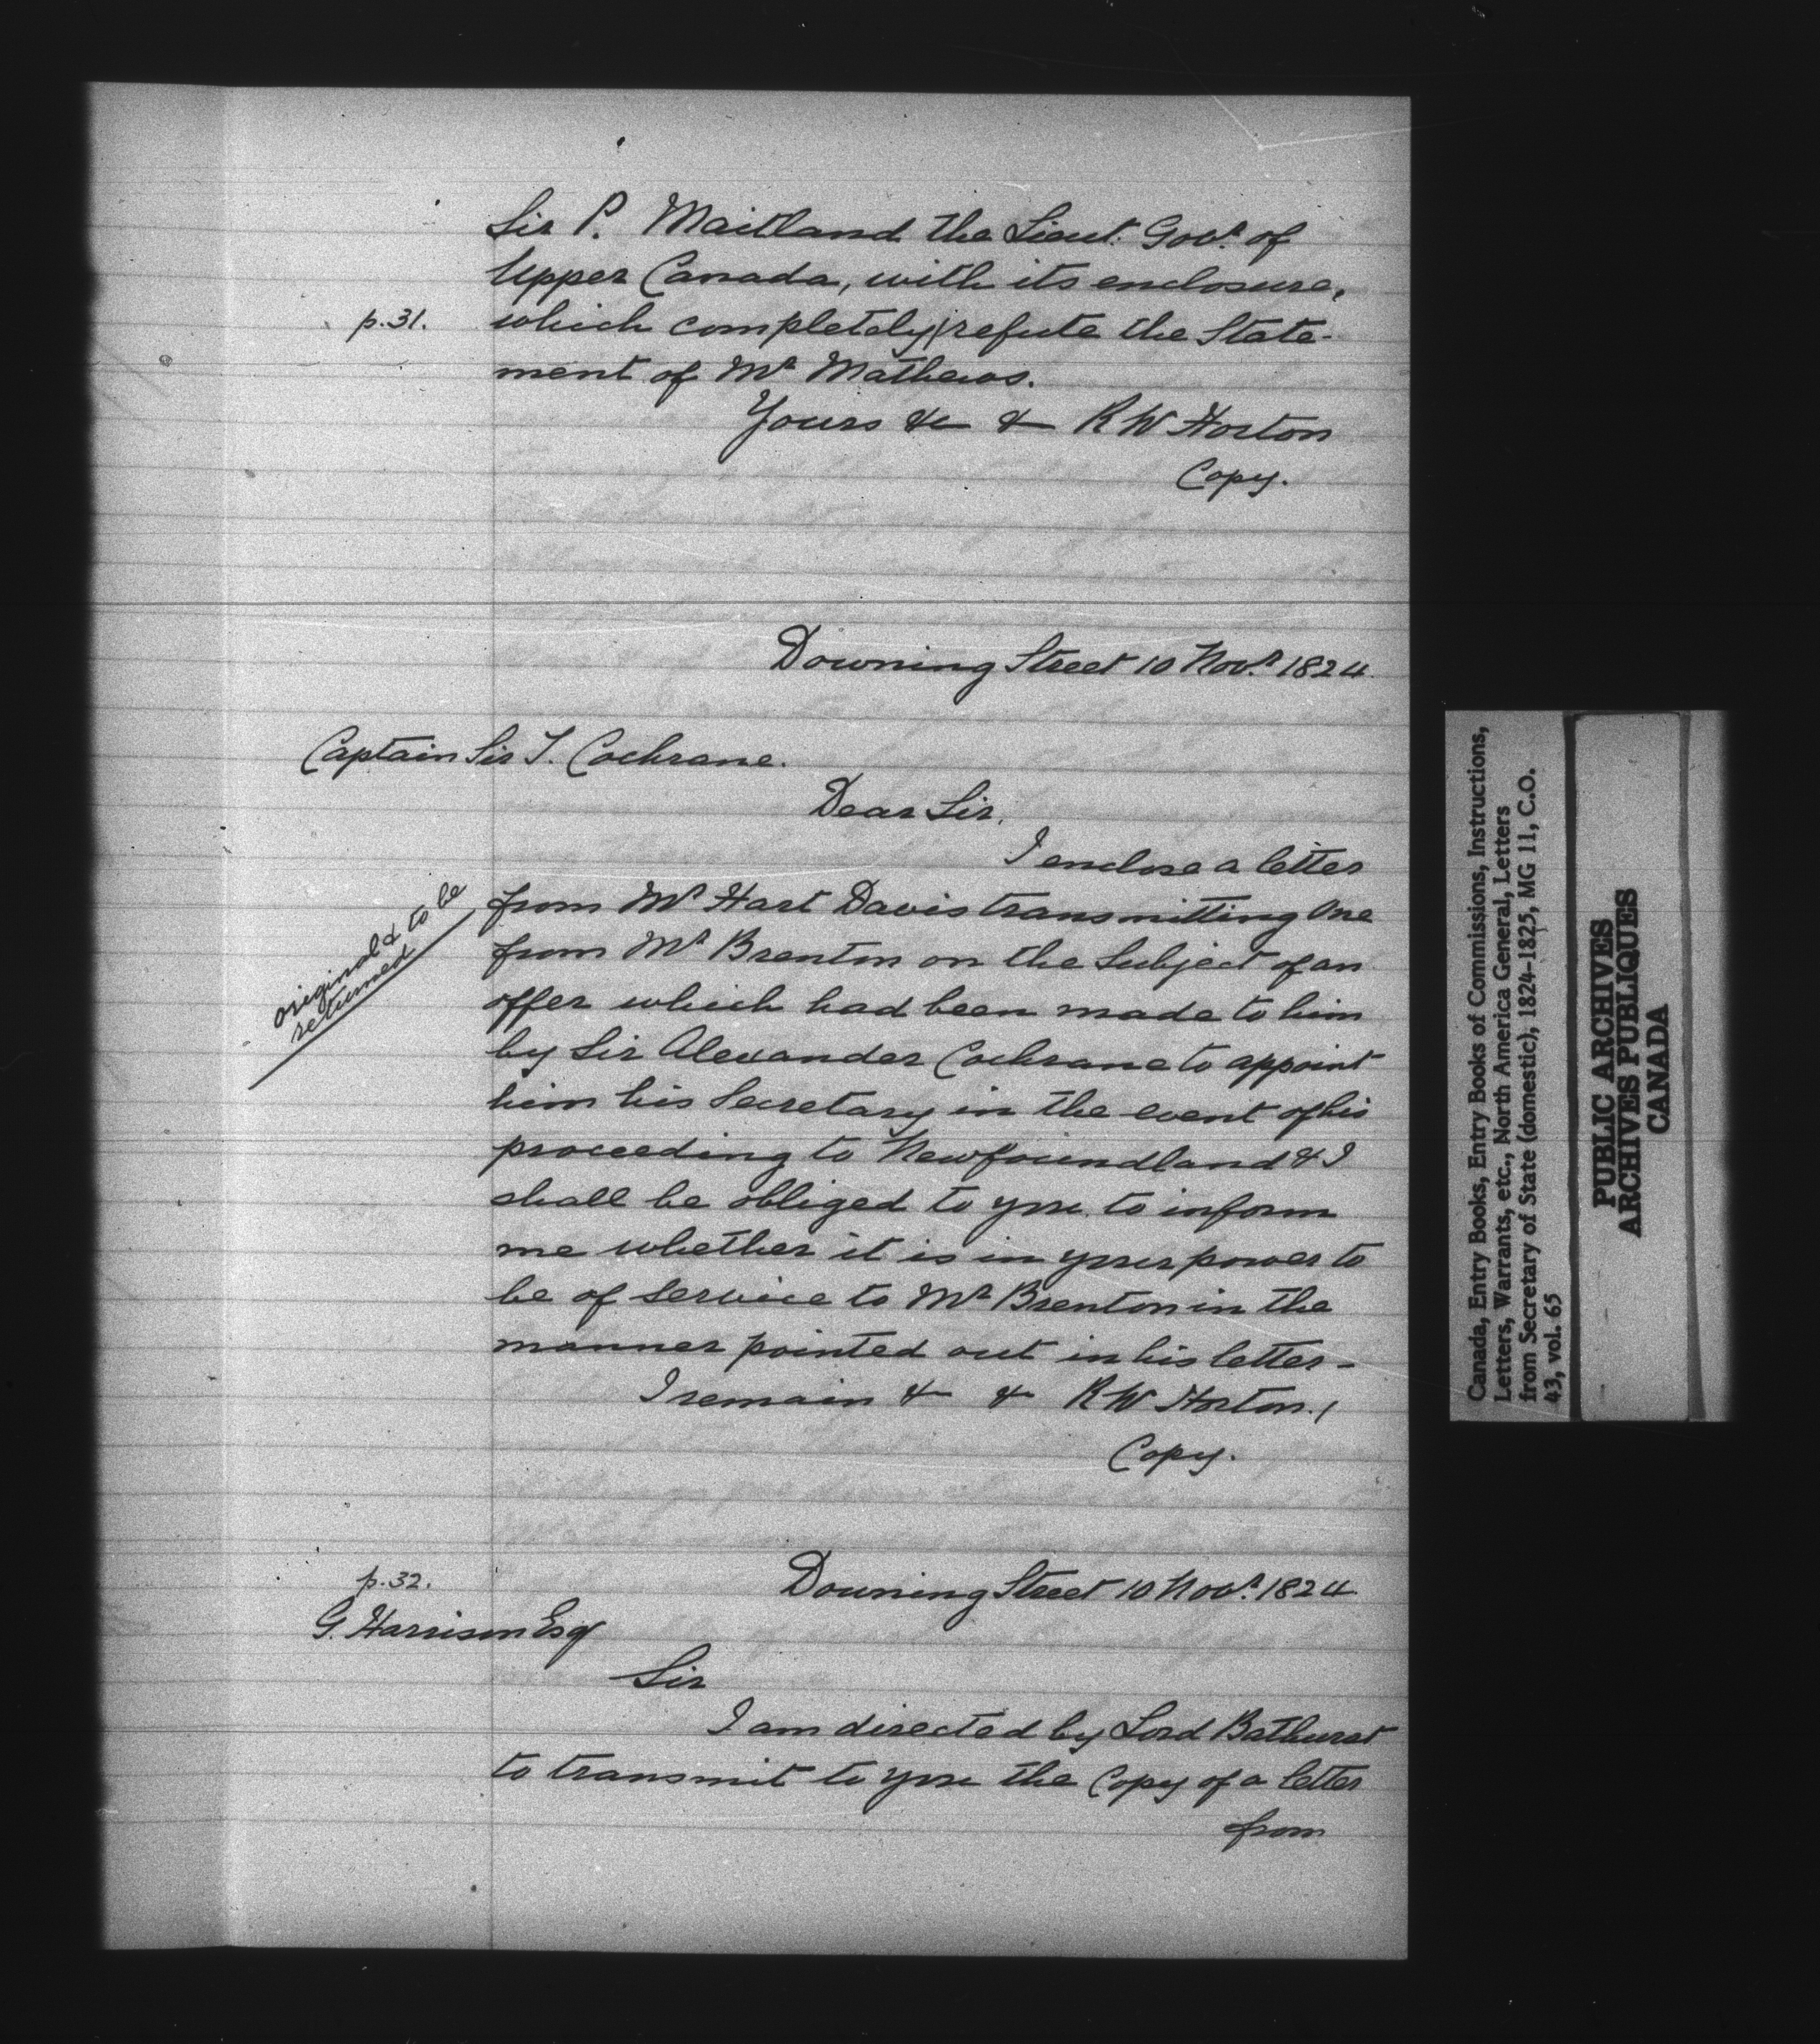 Sir P. Maitland the Lieut. Govr. of
Upper Canada, with its enclosure,
p.31. which completely refute the State-
ment of Mr Mathews.
Yours &c & R W Horton
Copy.
Downing Street 10 Novr. 1824
Captain Sir T. Cochrane.
Dear Sir,
I enclose a letter
original & to be
returned
from Mr Hart Davis transmitting One
from Mr Brenton on the Subject of an
offer which had been made to him
by Sir Alexander Cochrane to appoint
him his Secretary in the event of his
proceeding to Newfoundland & I
shall be obliged to you to inform
me whether it is in your power to
be of service to Mr Brenton in the
manner pointed out in his letter -
I remain & & R W Horton.
Copy.
p.32. Downing Street 10 Novr. 1824
G. Harrison Esq
Sir
I am directed by Lord Bathurst
to transmit to you the Copy of a letter
from
Canada, Entry Books, Entry Books of Commissions, Instructions,
Letters, Warrants, etc., North America General, Letters
from Secretary of State (domestic), 1824-1825, MG 11, C.O.
43, vol. 65
PUBLIC ARCHIVES
ARCHIVES PUBLIQUES
CANADA